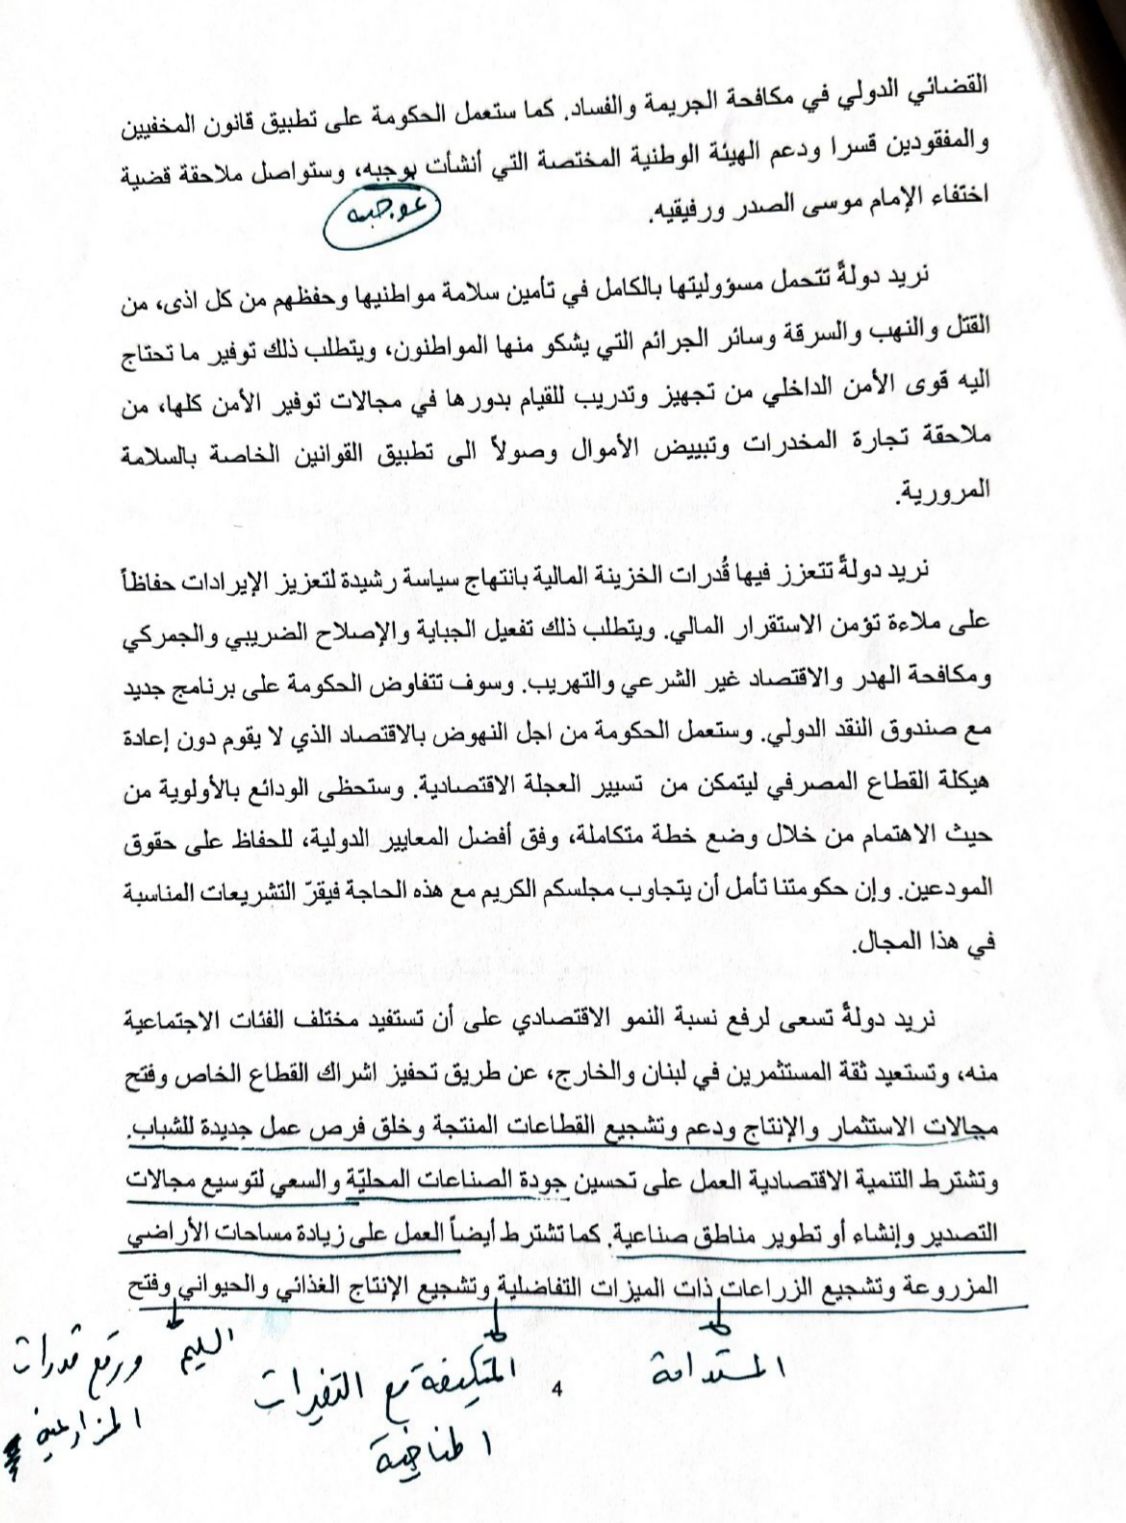 القضائي الدولي في مكافحة الجريمة والفساد. كما ستعمل الحكومة على تطبيق قانون المخفيين
والمفقودين قسرا ودعم الهيئة الوطنية المختصة التي أنشأت بوجبه، وستواصل ملاحقة قضية
بموجبه
اختفاء الإمام موسى الصدر ورفيقيه.
نريد دولةً تتحمل مسؤوليتها بالكامل في تأمين سلامة مواطنيها وحفظهم من كل اذى، من
القتل والنهب والسرقة وسائر الجرائم التي يشكو منها المواطنون، ويتطلب ذلك توفير ما تحتاج
اليه قوى الأمن الداخلي من تجهيز وتدريب للقيام بدورها في مجالات توفير الأمن كلها، من
ملاحقة تجارة المخدرات وتبييض الأموال وصولاً الى تطبيق القوانين الخاصة بالسلامة
المرورية.
نريد دولةً تتعزز فيها قُدرات الخزينة المالية بانتهاج سياسة رشيدة لتعزيز الإيرادات حفاظاً
على ملاءة تؤمن الاستقرار المالي. ويتطلب ذلك تفعيل الجباية والإصلاح الضريبي والجمركي
ومكافحة الهدر والاقتصاد غير الشرعي والتهريب. وسوف تتفاوض الحكومة على برنامج جديد
مع صندوق النقد الدولي. وستعمل الحكومة من اجل النهوض بالاقتصاد الذي لا يقوم دون إعادة
هيكلة القطاع المصرفي ليتمكن من تسيير العجلة الاقتصادية. وستحظى الودائع بالأولوية من
حيث الاهتمام من خلال وضع خطة متكاملة، وفق أفضل المعايير الدولية، للحفاظ على حقوق
المودعين. وإن حكومتنا تأمل أن يتجاوب مجلسكم الكريم مع هذه الحاجة فيقرّ التشريعات المناسبة
في هذا المجال.
نريد دولةً تسعى لرفع نسبة النمو الاقتصادي على أن تستفيد مختلف الفئات الاجتماعية
منه، وتستعيد ثقة المستثمرين في لبنان والخارج، عن طريق تحفيز اشراك القطاع الخاص وفتح
مجالات الاستثمار والإنتاج ودعم وتشجيع القطاعات المنتجة وخلق فرص عمل جديدة للشباب.
وتشترط التنمية الاقتصادية العمل على تحسين جودة الصناعات المحليّة والسعي لتوسيع مجالات
التصدير وإنشاء أو تطوير مناطق صناعية. كما تشترط أيضاً العمل على زيادة مساحات الأراضي
المزروعة وتشجيع الزراعات ذات الميزات التفاضلية وتشجيع الإنتاج الغذائي والحيواني وفتح
المستدامة
المتكيفة مع التغيرات
المناخية
السليم ورفع قدرات
المزارعين
4